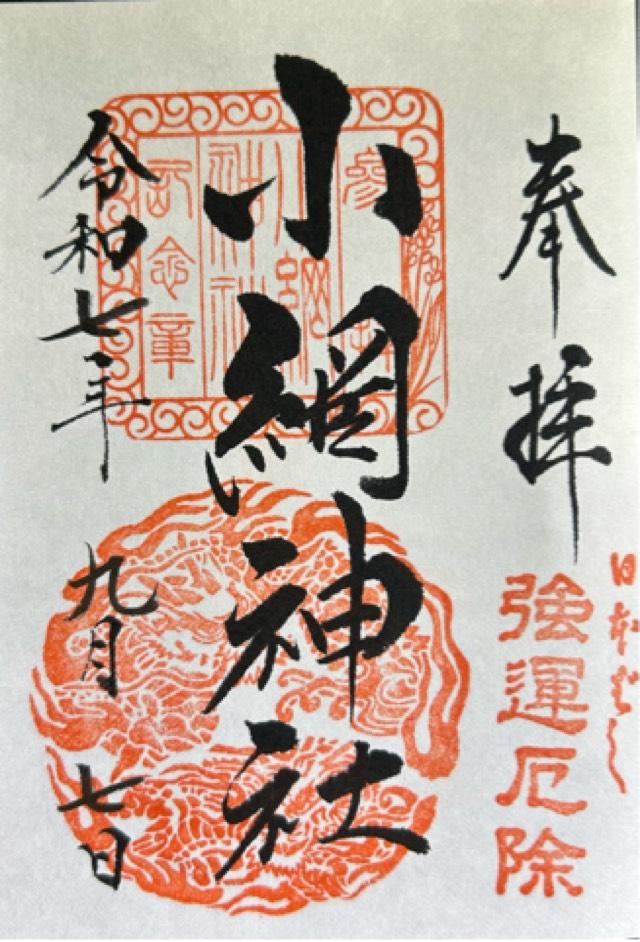 奉拝
日本ばし
強運厄除
小網神社
参拝
小網神社
記念章
令和七年
九月
七日